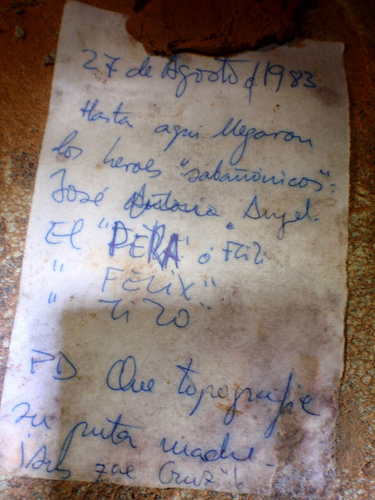 27 de Agosto d 1983
Hasta aqui llegaron
los heroes "sabañónicos":
José Antonio. Angel.
El "PERA" ó Fili
" FELIX"
" TiZO
PD Que topografie
su puta madre.